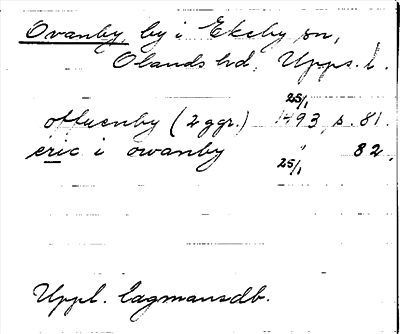 Ovanby, by i Ekeby sn,
Olands hd, Upps. l.
offuenby (2 ggr.) 25/1 1493, s. 81.
eric i owanby 25/1 " 82,
Uppl. lagmansdb.